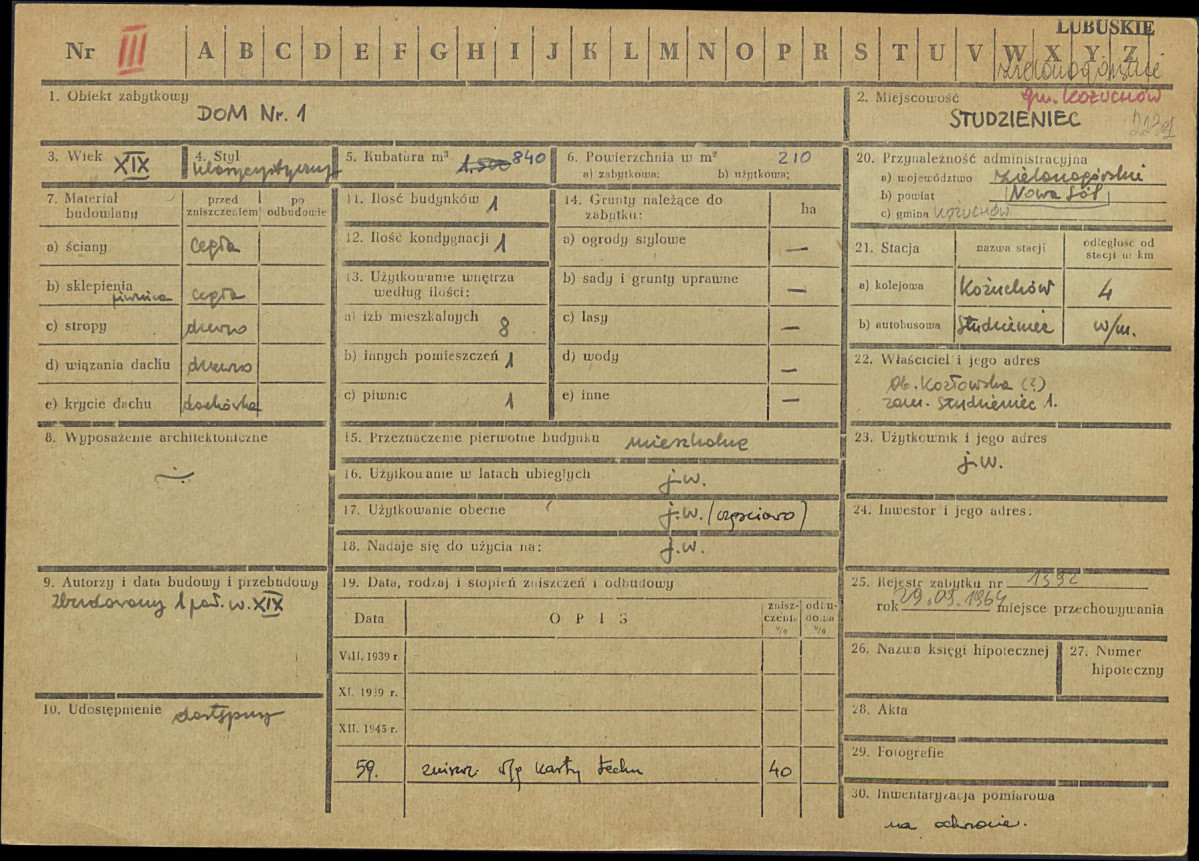 LUBUSKIE
Nr III A B C D E F G H I J K L M N O P R S T U V W X Y Z
zielonogórskie
gm. KOŻUCHÓW
1. Obiekt zabytkowy
DOM Nr. 1
2. Miejscowość
STUDZIENIEC
3. Wiek XIX
4. Styl
klasycystyczny
5. Kubatura m³ 1.500 840
6. Powierzchnia w m² 210
a) zabytkowa: b) użytkowa:
7. Materiał budowlany
przed zniszczeniem
po odbudowie
a) ściany cegła
b) sklepienia piwnica cegła
c) stropy drewno
d) wiązania dachu drewno
e) krycie dachu dachówka
8. Wyposażenie architektoniczne
9. Autorzy i data budowy i przebudowy
Zbudowany 1 poł. w. XIX
10. Udostępnienie dostępny
11. Ilość budynków 1
12. Ilość kondygnacji 1
13. Użytkowanie wnętrza według ilości:
a) izb mieszkalnych 8
b) innych pomieszczeń 1
c) piwnic 1
14. Grunty należące do zabytku:
ha
a) ogrody stylowe —
b) sady i grunty uprawne —
c) lasy —
d) wody —
e) inne —
15. Przeznaczenie pierwotne budynku mieszkalne
16. Użytkowanie w latach ubiegłych j.w.
17. Użytkowanie obecne j.w. (częściowo)
18. Nadaje się do użycia na: j.w.
19. Data, rodzaj i stopień zniszczeń i odbudowy
Data
OPIS
zniszczenia %
odbudowa %
VIII. 1939 r.
XI. 1939 r.
XII. 1945 r.
59. zniszcz. w/g karty techn 40
20. Przynależność administracyjna
a) województwo zielonogórskie
b) powiat Nowa Sól
c) gmina KOŻUCHÓW
21. Stacja
nazwa stacji
odległość od stacji w km
a) kolejowa Kożuchów 4
b) autobusowa Studzieniec w/m.
22. Właściciel i jego adres
Ob. Kozłowska (?)
zam. Studzieniec 1.
23. Użytkownik i jego adres
j.w.
24. Inwestor i jego adres:
25. Rejestr zabytku nr 1392
rok 29.03.1964 miejsce przechowywania
26. Nazwa księgi hipotecznej
27. Numer hipoteczny
28. Akta
29. Fotografie
30. Inwentaryzacja pomiarowa
na odwrocie.